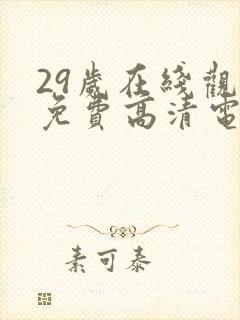 29歲在綫觀
免費高清電
素可泰